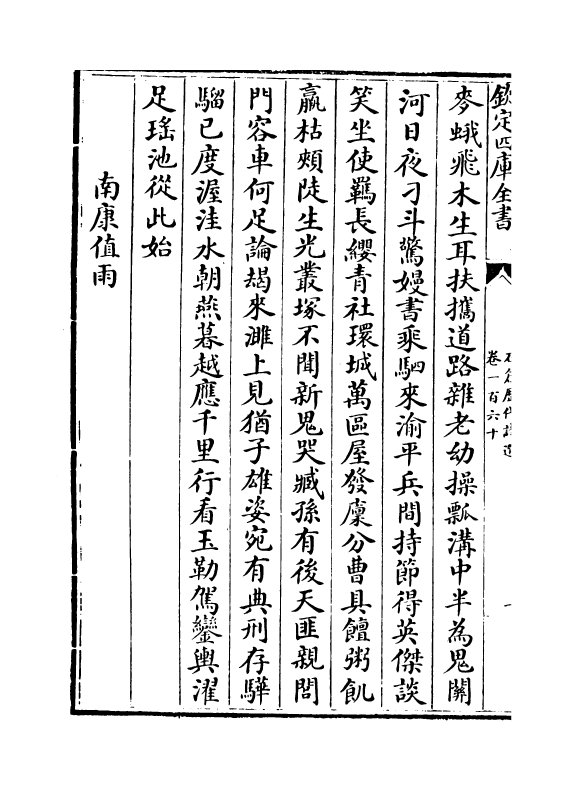 欽定四庫全書
卷一百六十
麥蛾飛木生耳扶攜道路雜老幼操瓢溝中半為鬼關
河日夜刁斗驚嫚書乘駟來渝平兵間持節得英傑談
笑坐使羈長纓青社環城萬區屋發廩分曹具饘粥飢
羸枯頰陡生光叢塚不聞新鬼哭臧孫有後天匪親閭
門容車何足論朅來濉上見猶子雄姿宛有典刑存驊
騮已度渥洼水朝燕暮越應千里行看玉勒駕鑾輿濯
足瑤池從此始
南康值雨